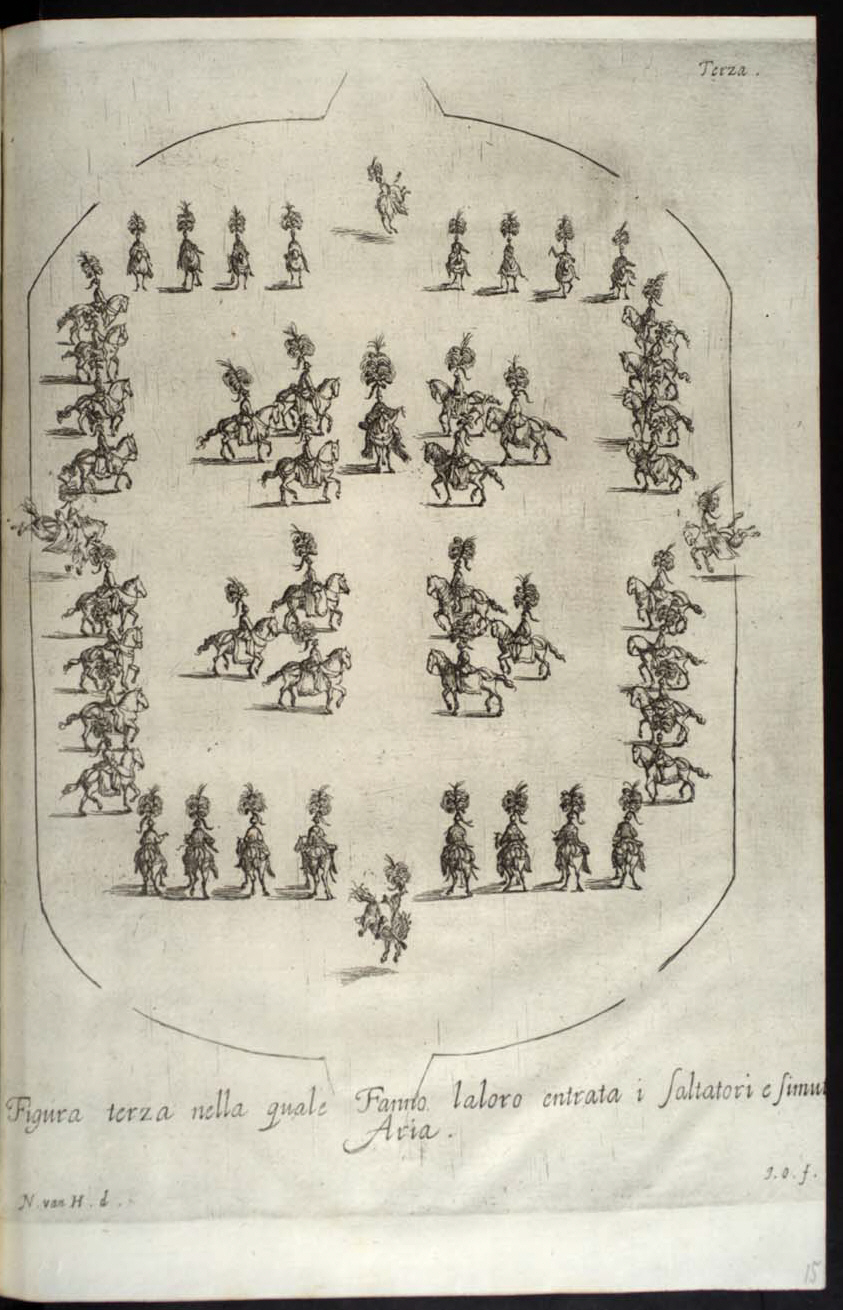 Terza .
Figura terza nella quale Fanno laloro entrata i ſaltatori e ſimut
Aria .
N van H . d .
J . o . f .
15